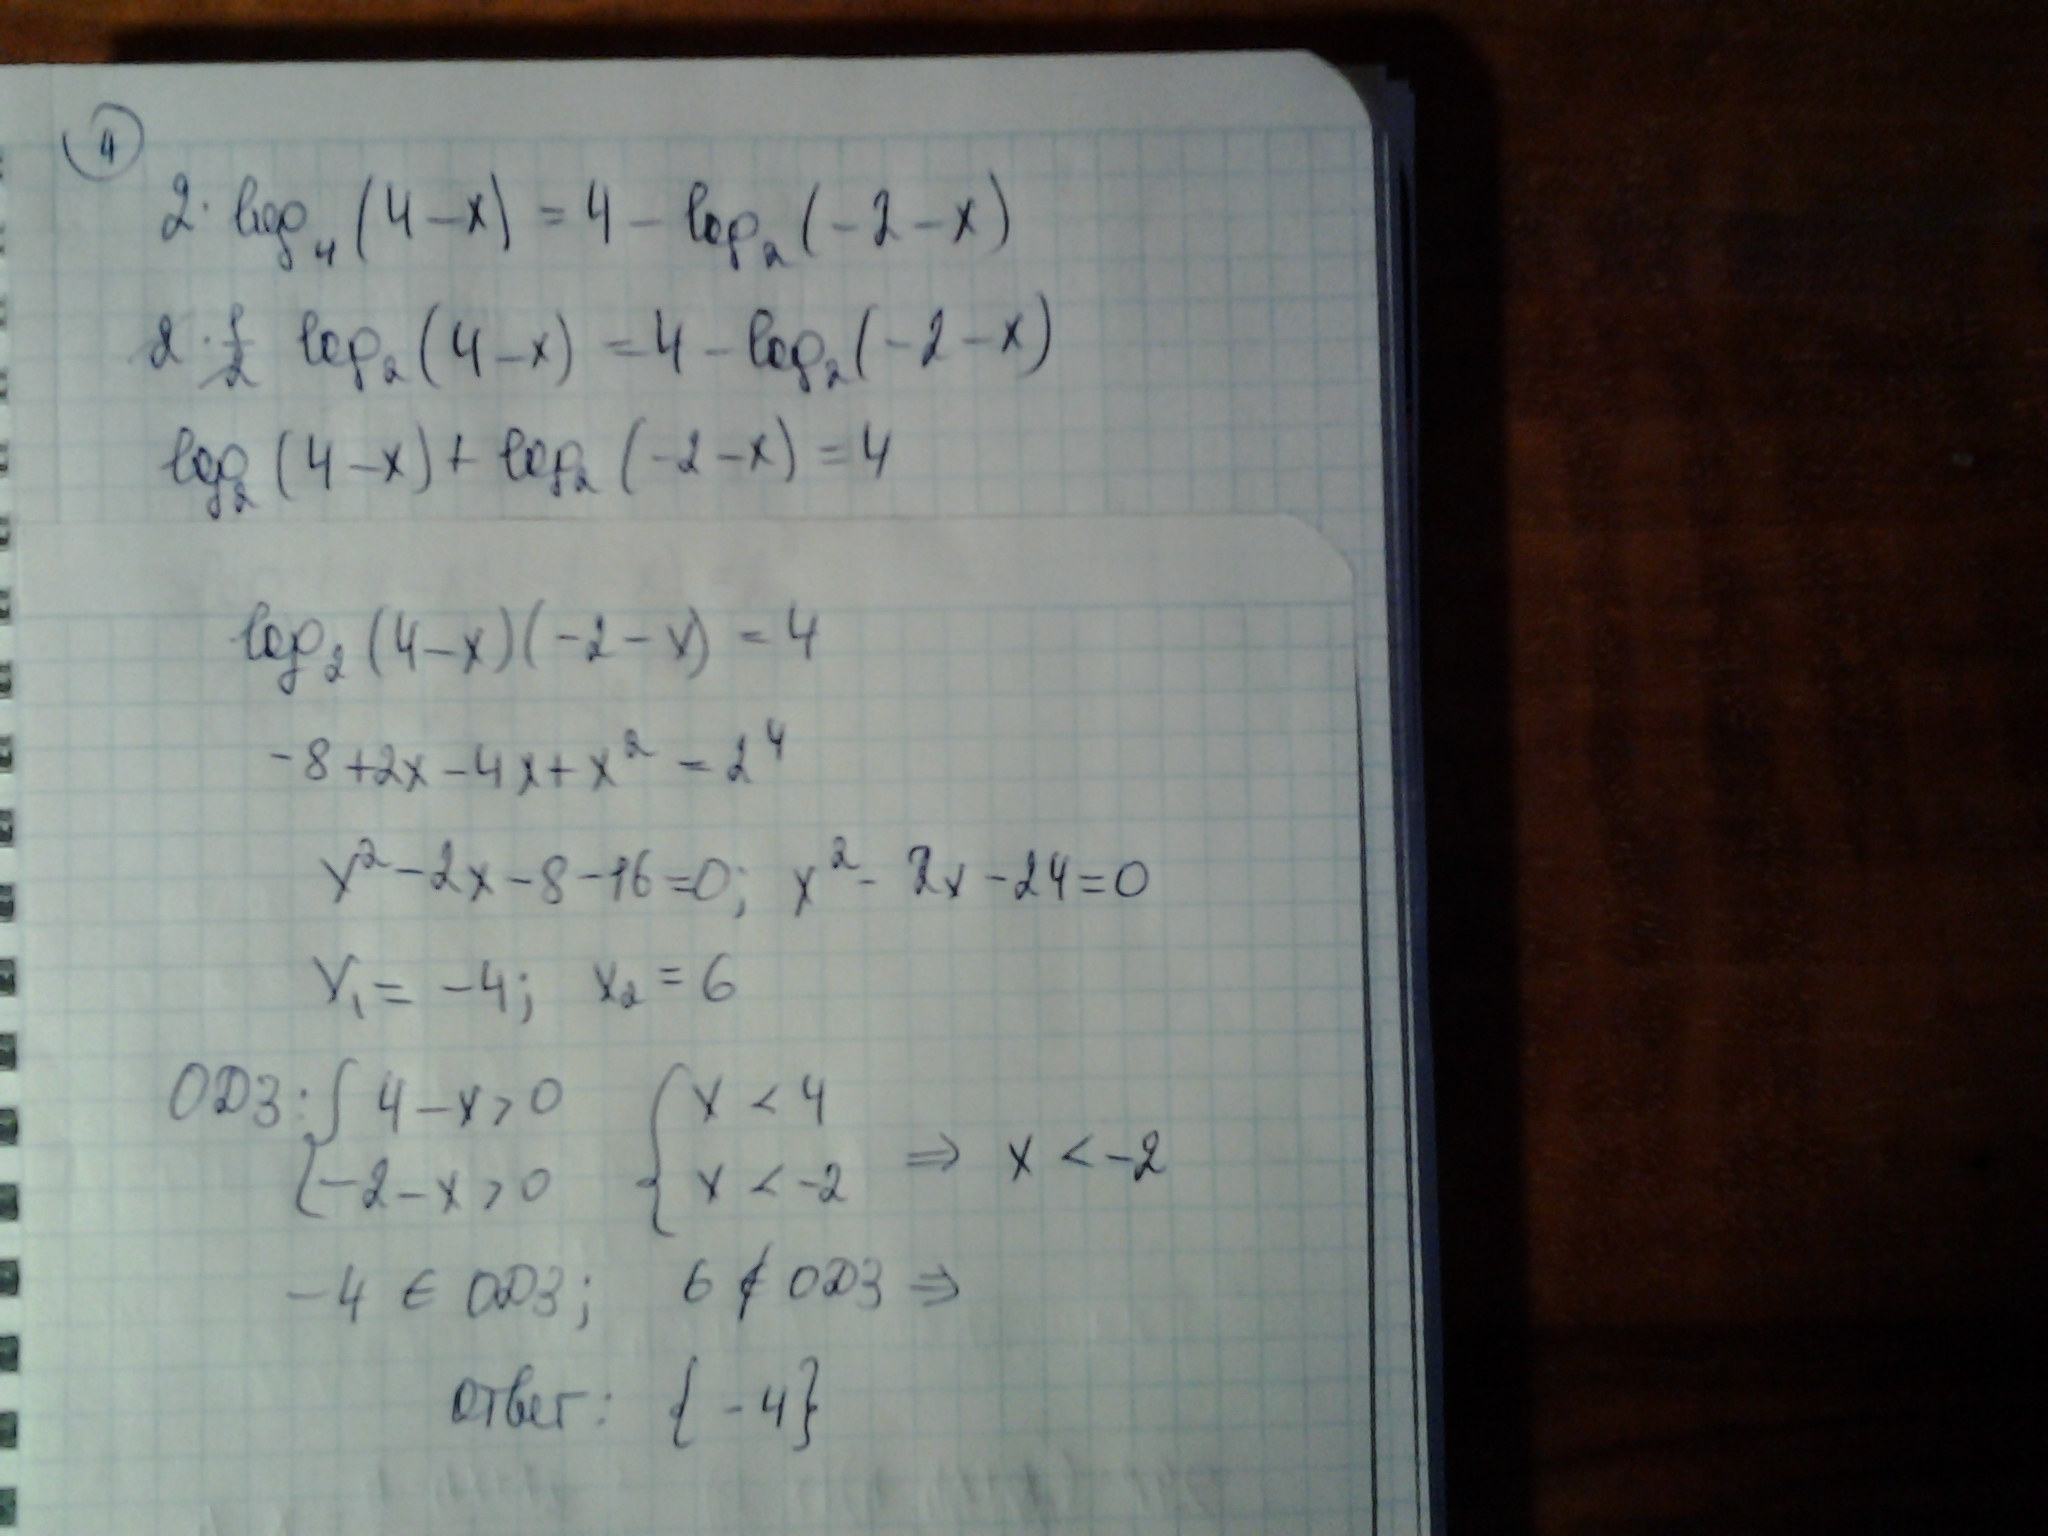 4
2 · log₄ (4 – x) = 4 – log₂ (–2 – x)
2 · 1/2 log₂ (4 – x) = 4 – log₂ (–2 – x)
log₂ (4 – x) + log₂ (–2 – x) = 4
log₂ (4 – x)(–2 – x) = 4
–8 + 2x – 4x + x² = 2⁴
x² – 2x – 8 – 16 = 0; x² – 2x – 24 = 0
x₁ = –4; x₂ = 6
ОДЗ: { 4 – x > 0 { x < 4
{ –2 – x > 0 { x < –2 ⇒ x < –2
–4 ∈ ОДЗ; 6 ∉ ОДЗ ⇒
Ответ: {–4}